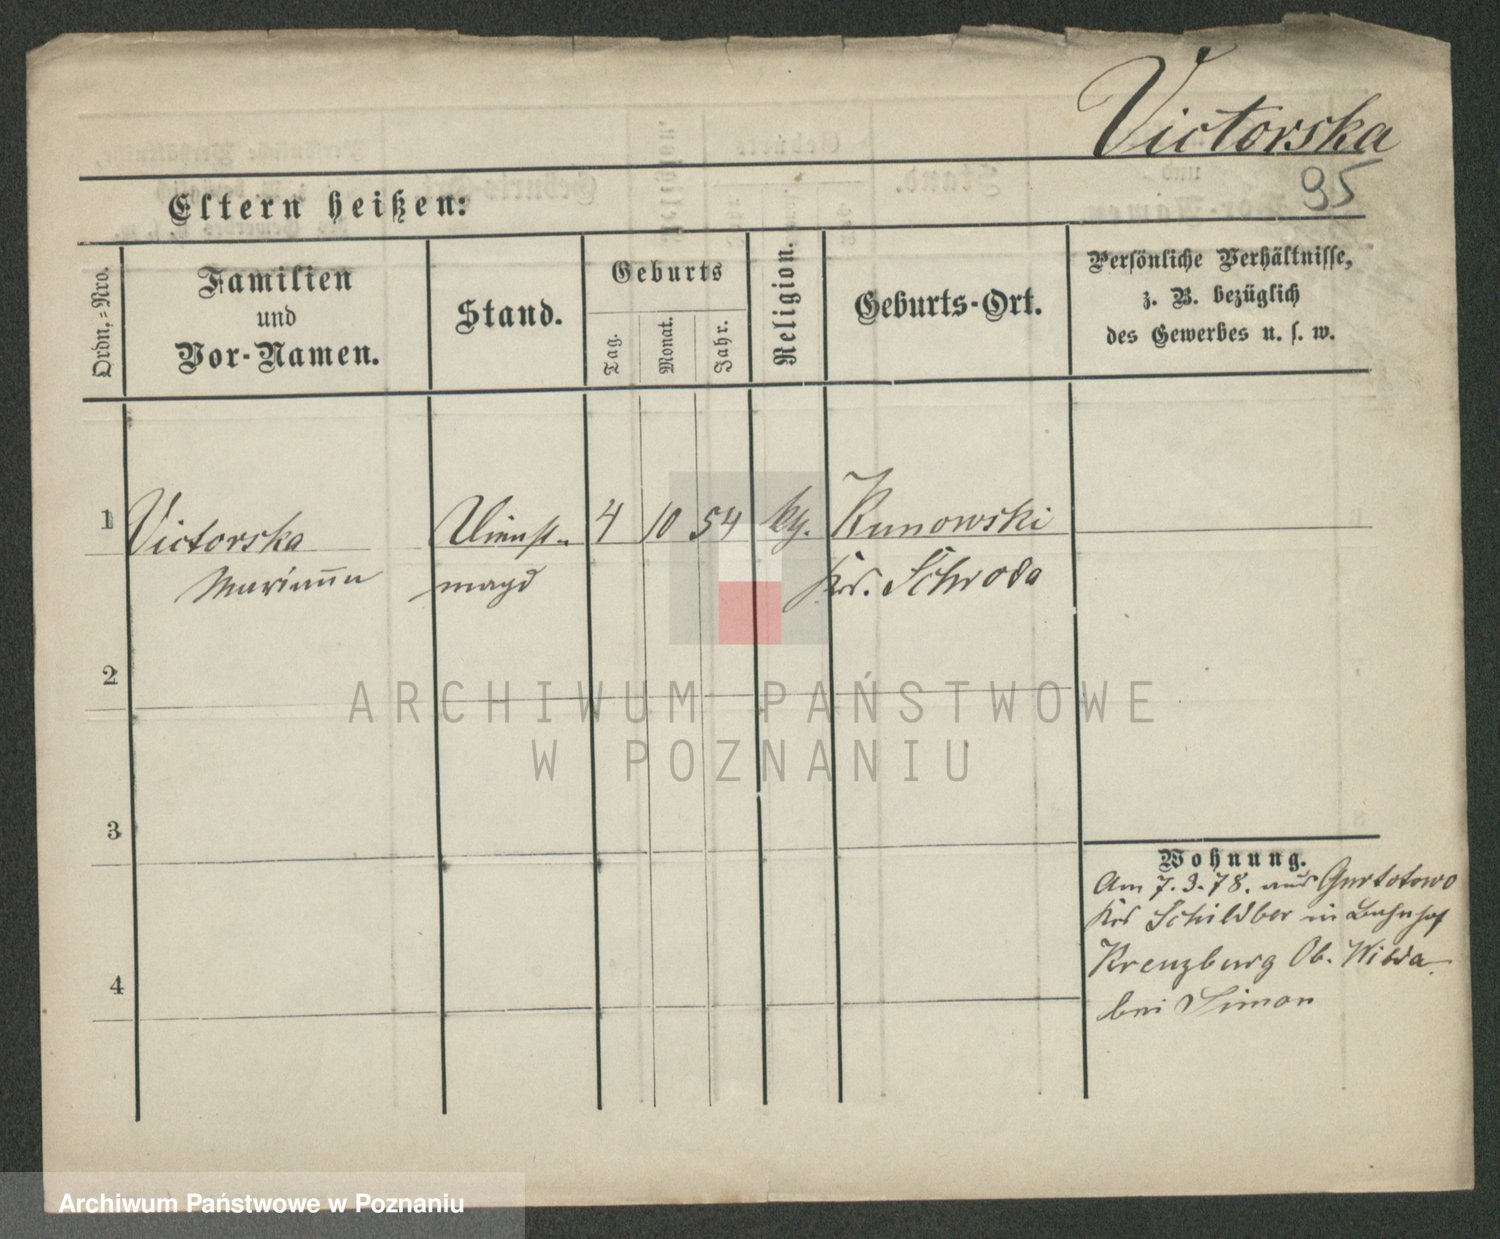 Victorska
95
Eltern heißen:
Ordn.-Nro.
Familien
und
Vor-Namen.
Stand.
Geburts
Tag.
Monat.
Jahr.
Religion.
Geburts-Ort.
Persönliche Verhältnisse,
z. B. bezüglich
des Gewerbes u. s. w.
1 Victorska Dienst- 4 10 54 Kunowski
Marianna magd Krs. Schroda
2
ARCHIWUM PAŃSTWOWE
W POZNANIU
3
4
Wohnung.
Am 7.3.78. aus
Krs Schildber in Bahnhof
Kreuzburg Ob. Wilda
bei Simon
Archiwum Państwowe w Poznaniu